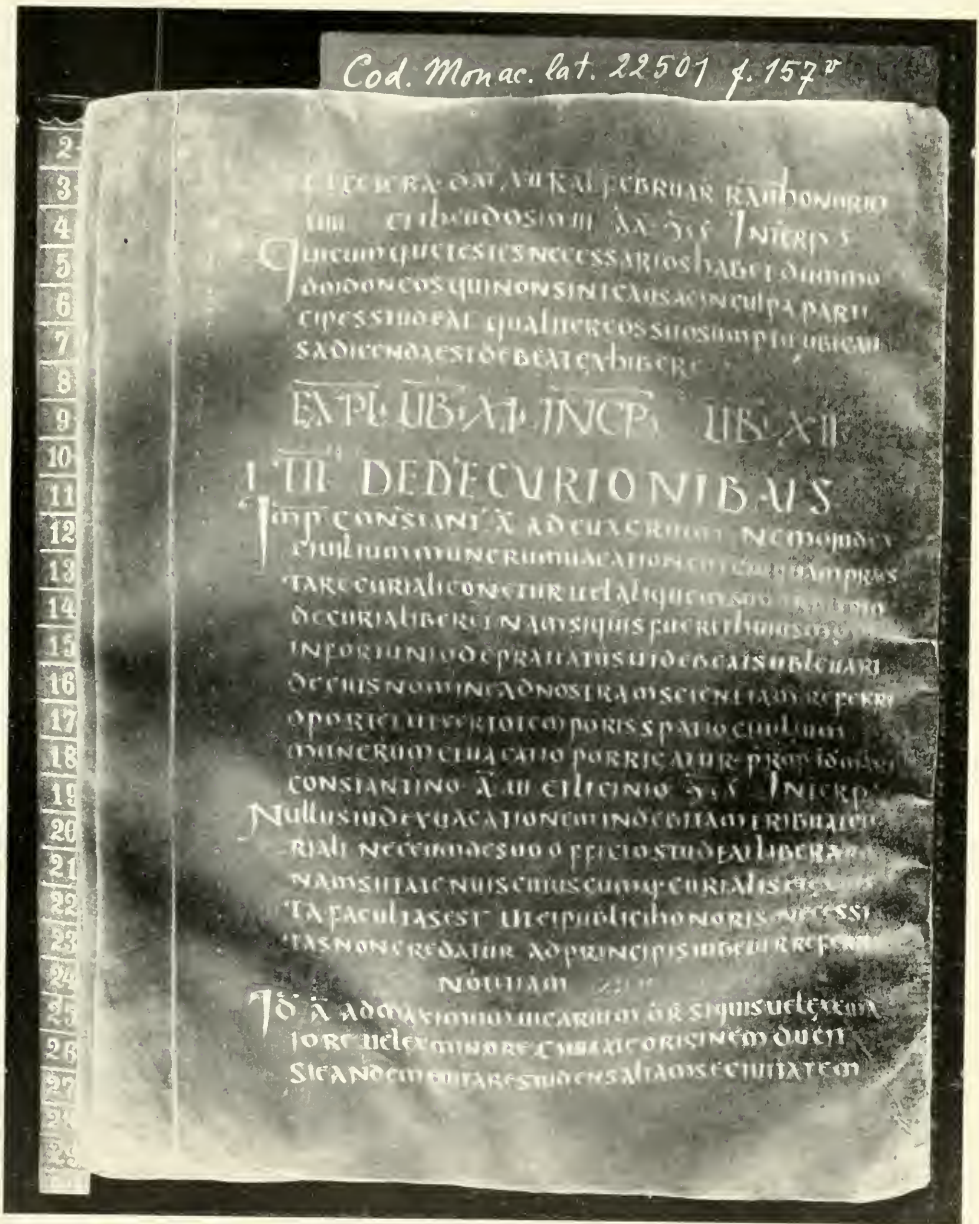 Cod. Monac. lat. 22501 f. 157v
ET CETERA DAT VII KAL FEBRUAR RAU HONORIO
IIII ET THEUDOSIO III ĀĀ C̄S̄S̄ INTERP S
QUICUMQUE TESTES NECESSARIOS HABET DUMMO
DO IDONEOS QUI NON SINT CAUSAE IN CULPA PARTI
CIPES STUDEAT QUALITER EOS SUO SUMPTU UBI CAU
SA DICENDA EST DEBEAT EXHIBERE
EXPL· LIB· XI· INCP· LIB· XII
I TIT DE DECURIONIBUS
IMP CONSTANT Ā AD NEMO IUDEX
CIUILIUM MUNERUM UACATIONEM PRAES
TARE CURIALI CONETUR UEL ALIQUEM SUO
DE CURIA LIBERET NAM SI QUIS FUERIT HUIUSMODI
INFORTUNIO DEPRAUATUS UT DEBEAT SUBLEUARI
DE EIUS NOMINE AD NOSTRAM SCIENTIAM REFERRI
OPORTET UT CERTO TEMPORIS SPATIO CIUILIUM
MUNERUM EI UACATIO PORRIGATUR PROP
CONSTANTINO Ā III ET LICINIO C̄S̄S̄ INTERP
NULLUS IUDEX UACATIONEM INDEBITAM TRIBUAT CU
RIALI NEC EUM DE SUO OFFICIO STUDEAT LIBERARE
NAM SI TAE TENUIS CUIUSCUMQ· CURIALIS
TA FACULTAS EST UT EI PUBLICI HONORIS NECESSI
TAS NON CREDATUR AD PRINCIPIS IUBETUR REFERRI
NOTITIAM
ID Ā AD MAXIMUM UICARIUM OR SI QUIS UEL EX MA
IORE UEL EX MINORE CIUITATE ORIGINEM DUCIT
SI EANDEM EUITARE STUDENS ALIAM SE CIUITATEM
2
3
4
5
6
7
8
9
10
11
12
13
14
15
16
17
18
19
20
21
22
23
24
25
26
27